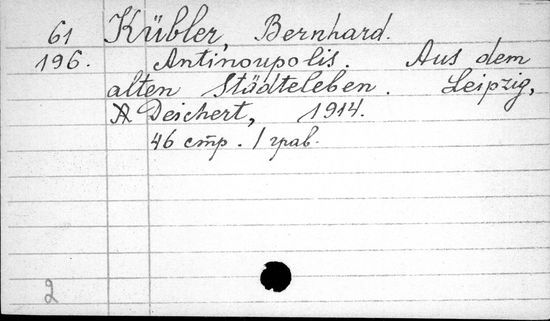 61 Kübler, Bernhard.
196. Antinoupolis. Aus dem
alten Städteleben. Leipzig,
A Deichert, 1914.
46 стр. 1 грав.
2